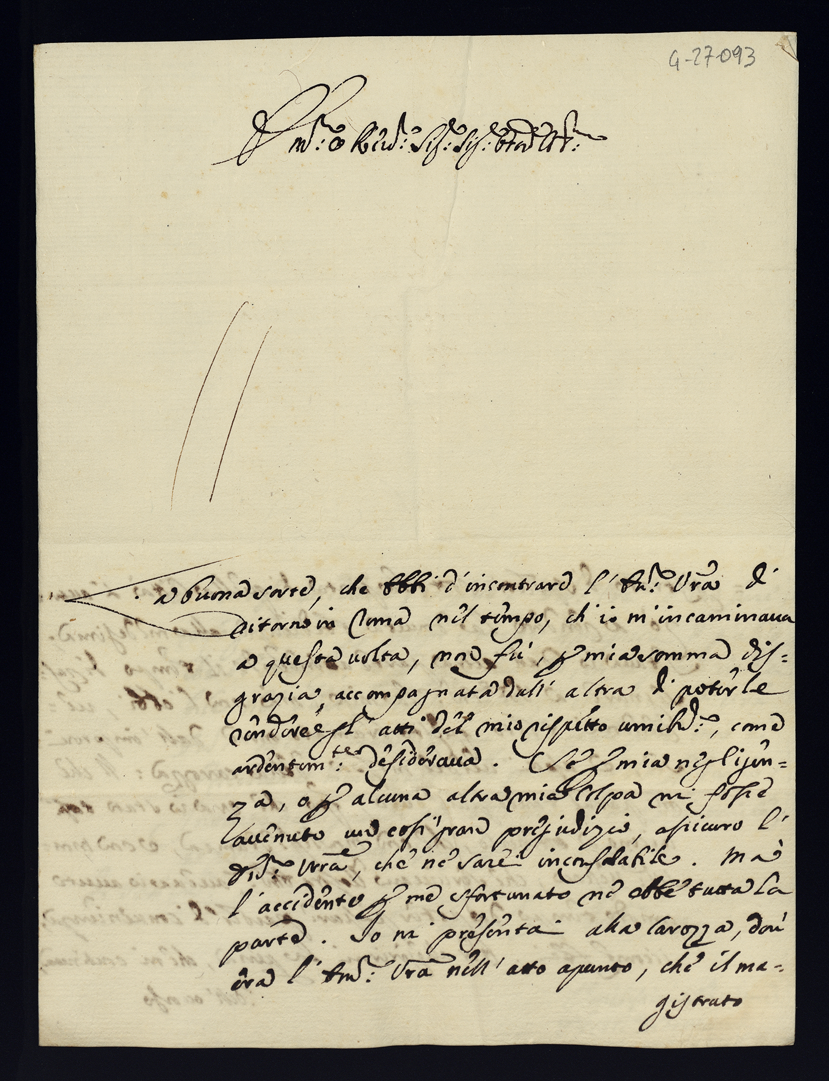 G-27-093
Em.º e Rev.º Sig.r Sig.r
La buona sorte, che ebbi d'incontrare l'Em.ª Vrã di
ritorno in Roma nel tempo, ch'io m'incaminava
a questa volta, non fù, p mia somma dis-
grazia, accompagnata dall'altra di poterle
rendere gl'atti del mio rispetto umilis.º, come
ardentem.te desiderava. Se p mia negligen-
za, o p alcuna altra mia colpa mi fosse
avenuto un così gran prejudizio, assicuro l'
Em.ª Vrã, che ne sarei inconsolabile. Mà
l'accidente p me sfortunato ne ebbe tutta la
parte. Io mi presentai alla carozza, dov'
era l'Em.ª Vrã nell'atto apunto, che il ma-
gistrato